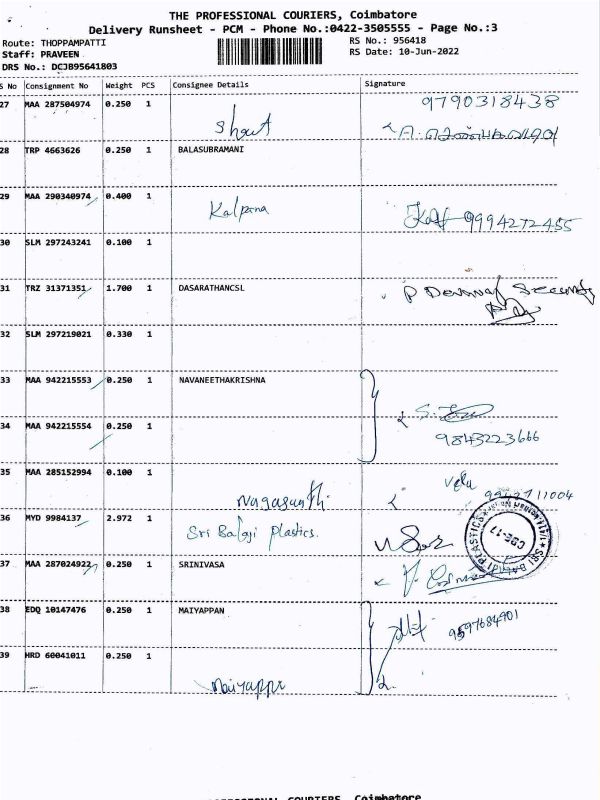 THE PROFESSIONAL COURIERS, Coimbatore
Delivery Runsheet - PCM - Phone No.:0422-3505555 - Page No.:3
Route: THOPPAMPATTI
RS No.: 956418
Staff: PRAVEEN
RS Date: 10-Jun-2022
DRS No.: DCJB95641803
S No Consignment No Weight PCS Consignee Details Signature
27 MAA 287504974 0.250 1 9790318438
28 TRP 4663626 0.250 1 BALASUBRAMANI
29 MAA 290340974 0.400 1 Kalpana 9994272455
30 SLM 297243241 0.100 1
31 TRZ 31371351 1.700 1 DASARATHANCSL
32 SLM 297219021 0.330 1
33 MAA 942215553 0.250 1 NAVANEETHAKRISHNA
34 MAA 942215554 0.250 1 9843223666
35 MAA 285152994 0.100 1 Velu
36 MYD 9984137 2.972 1 Sri Balaji Plastics.
37 MAA 287024922 0.250 1 SRINIVASA
38 EDQ 10147476 0.250 1 MAIYAPPAN 9597684901
39 HRD 60041011 0.250 1
PROFESSIONAL COURIERS, Coimbatore